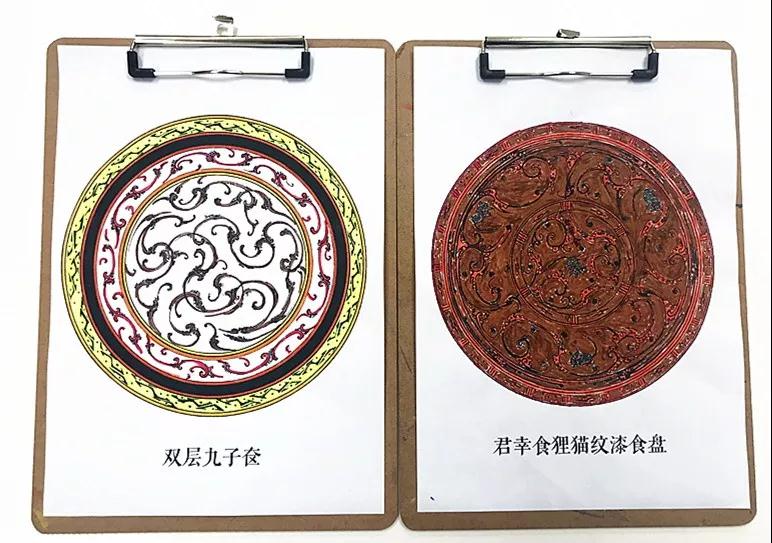 双层九子奁
君幸食狸猫纹漆食盘